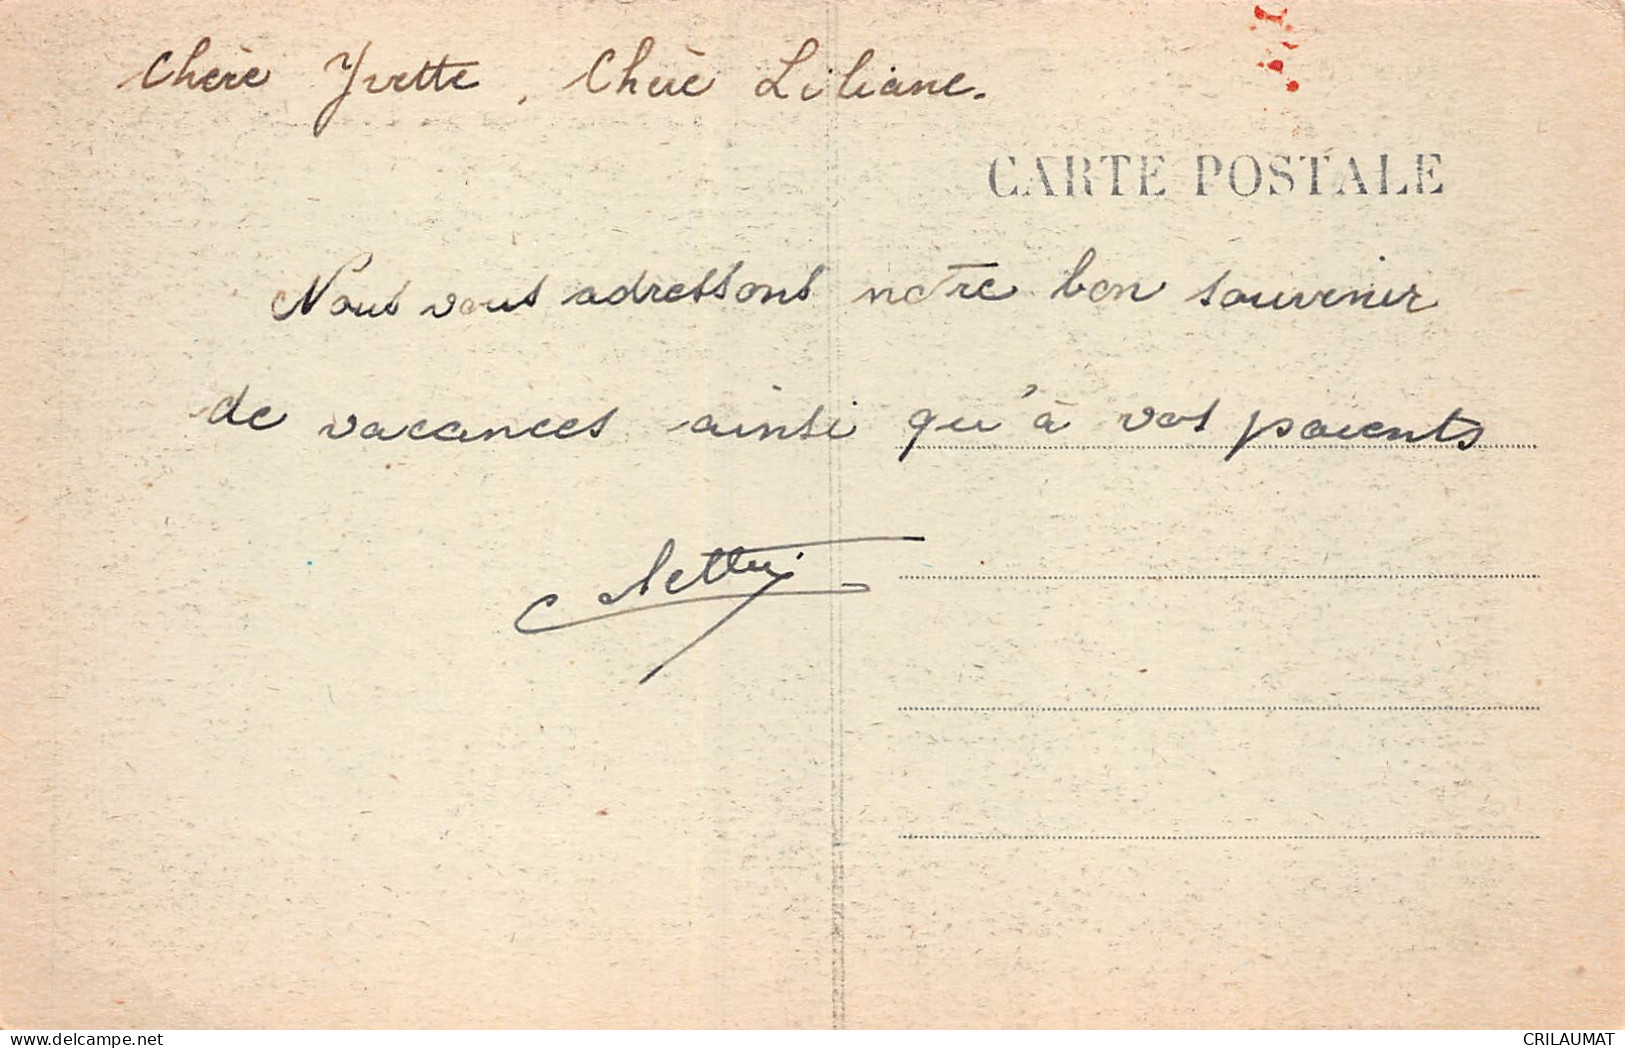 Chère Yvette, Chère Liliane.
CARTE POSTALE
Nous vous adressons notre bon souvenir
de vacances ainsi qu'à vos parents
delcampe.net
CRILAUMAT